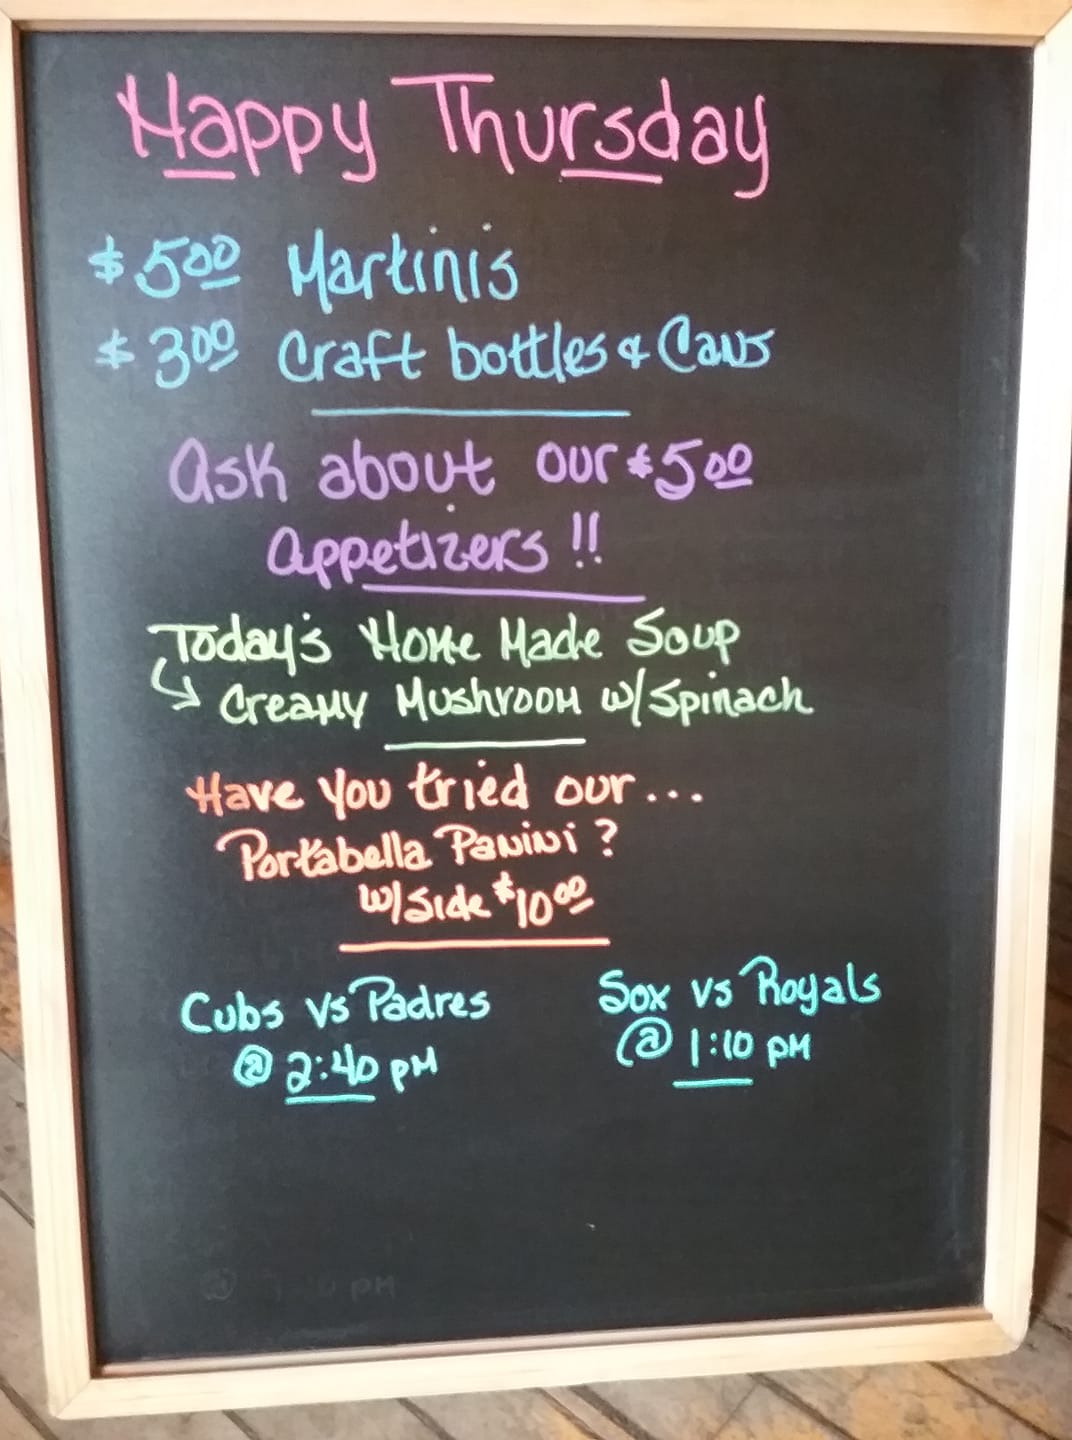 Happy Thursday
$5.00 Martinis
$3.00 Craft bottles & Cans
Ask about our $5.00
Appetizers!!
Today's Home Made Soup
↳ Creamy Mushroom w/Spinach
Have you tried our...
Portabella Panini?
w/Side $10.00
Cubs vs Padres
@ 2:40 pm
Sox vs Royals
@ 1:10 pm
@ pm